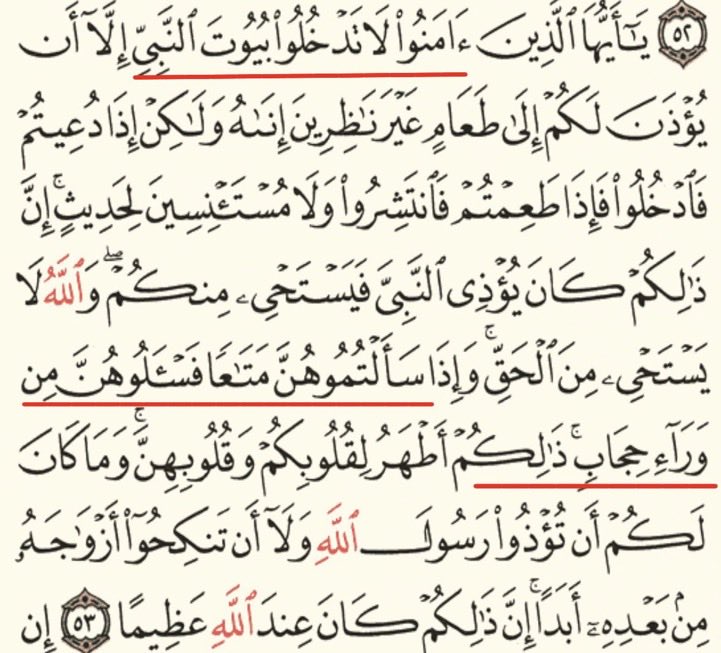 ٥٢ يَـٰٓأَيُّهَا ٱلَّذِينَ ءَامَنُوا۟ لَا تَدْخُلُوا۟ بُيُوتَ ٱلنَّبِىِّ إِلَّآ أَن
يُؤْذَنَ لَكُمْ إِلَىٰ طَعَامٍ غَيْرَ نَـٰظِرِينَ إِنَىٰهُ وَلَـٰكِنْ إِذَا دُعِيتُمْ
فَٱدْخُلُوا۟ فَإِذَا طَعِمْتُمْ فَٱنتَشِرُوا۟ وَلَا مُسْتَـْٔنِسِينَ لِحَدِيثٍ ۚ إِنَّ
ذَٰلِكُمْ كَانَ يُؤْذِى ٱلنَّبِىَّ فَيَسْتَحْىِۦ مِنكُمْ ۖ وَٱللَّهُ لَا
يَسْتَحْىِۦ مِنَ ٱلْحَقِّ ۚ وَإِذَا سَأَلْتُمُوهُنَّ مَتَـٰعًا فَسْـَٔلُوهُنَّ مِن
وَرَآءِ حِجَابٍ ۚ ذَٰلِكُمْ أَطْهَرُ لِقُلُوبِكُمْ وَقُلُوبِهِنَّ ۚ وَمَا كَانَ
لَكُمْ أَن تُؤْذُوا۟ رَسُولَ ٱللَّهِ وَلَآ أَن تَنكِحُوٓا۟ أَزْوَٰجَهُۥ
مِنۢ بَعْدِهِۦٓ أَبَدًا ۚ إِنَّ ذَٰلِكُمْ كَانَ عِندَ ٱللَّهِ عَظِيمًا ٥٣ إِن